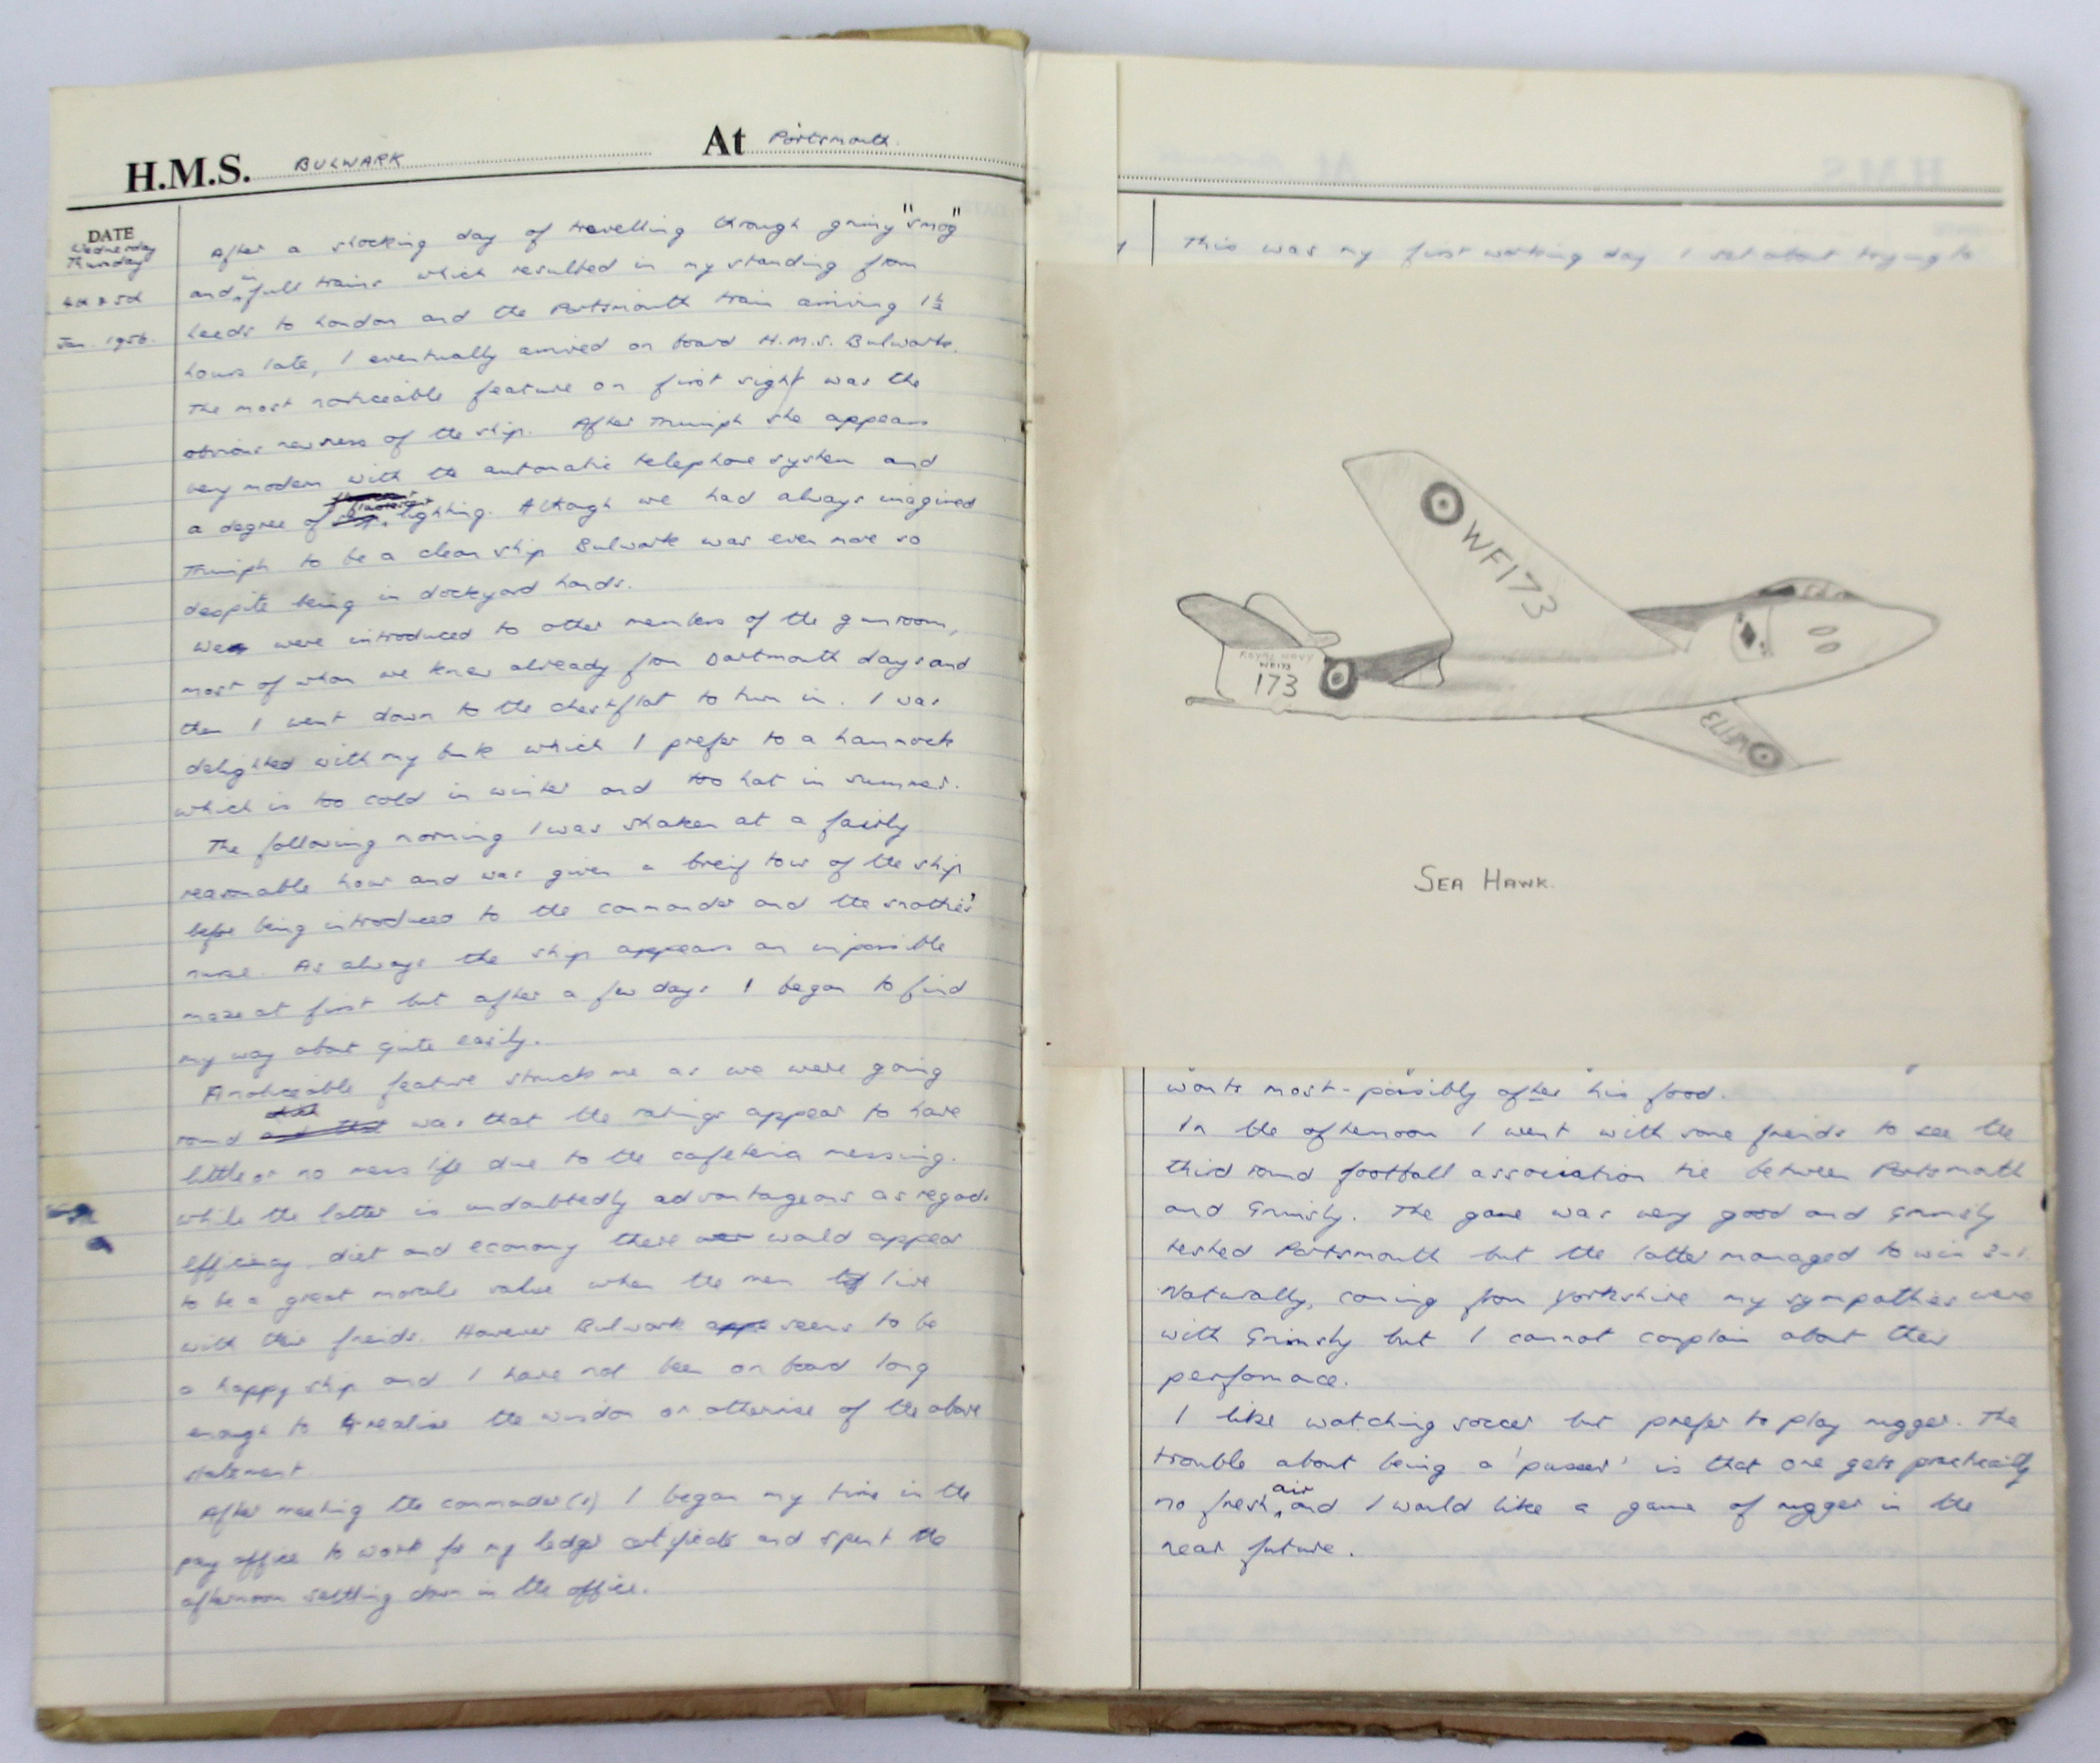 H.M.S. BULWARK At Portsmouth
DATE
Wednesday
Thursday
4th & 5th
Jan. 1956.
After a shocking day of travelling through grimy "smog"
and in full trains which resulted in my standing from
Leeds to London and the Portsmouth train arriving 1½
hours late, I eventually arrived on board H.M.S. Bulwark.
The most noticeable feature on first sight was the
obvious newness of the ship. After Triumph she appears
very modern with the automatic telephone system and
a degree of lighting. Although we had always imagined
Triumph to be a clean ship Bulwark was even more so
despite being in dockyard hands.
We were introduced to other members of the gunroom,
most of whom we knew already from Dartmouth days and
then I went down to the chestflat to turn in. I was
delighted with my bunk which I prefer to a hammock
which is too cold in winter and too hot in summer.
The following morning I was shaken at a fairly
reasonable hour and was given a breif tour of the ship
before being introduced to the commander and the snotties'
nurse. As always the ship appears an impossible
maze at first but after a few days I began to find
my way about quite easily.
A noticeable feature struck me as we were going
round was that the ratings appear to have
little or no mess life due to the cafeteria messing.
While the latter is undoubtedly advantageous as regards
efficiency, diet and economy there would appear
to be a great morale value when the men live
with their friends. However Bulwark seems to be
a happy ship and I have not been on board long
enough to realise the wisdom or otherwise of the above
statement.
After meeting the commander(s) I began my time in the
pay office to work for my ledger certificate and spent the
afternoon settling down in the office.
y
This was my first working day I set about trying to
WF173
ROYAL NAVY
WF173
173
WF173
SEA HAWK.
wants most - possibly after his food.
In the afternoon I went with some freinds to see the
third round football association tie between Portsmouth
and Grimsby. The game was very good and Grimsby
tested Portsmouth but the latter managed to win 3-1.
Naturally, coming from Yorkshire my sympathies were
with Grimsby but I cannot complain about their
performace.
I like watching soccer but prefer to play rugger. The
trouble about being a 'pusser' is that one gets practically
no fresh air and I would like a game of rugger in the
near future.